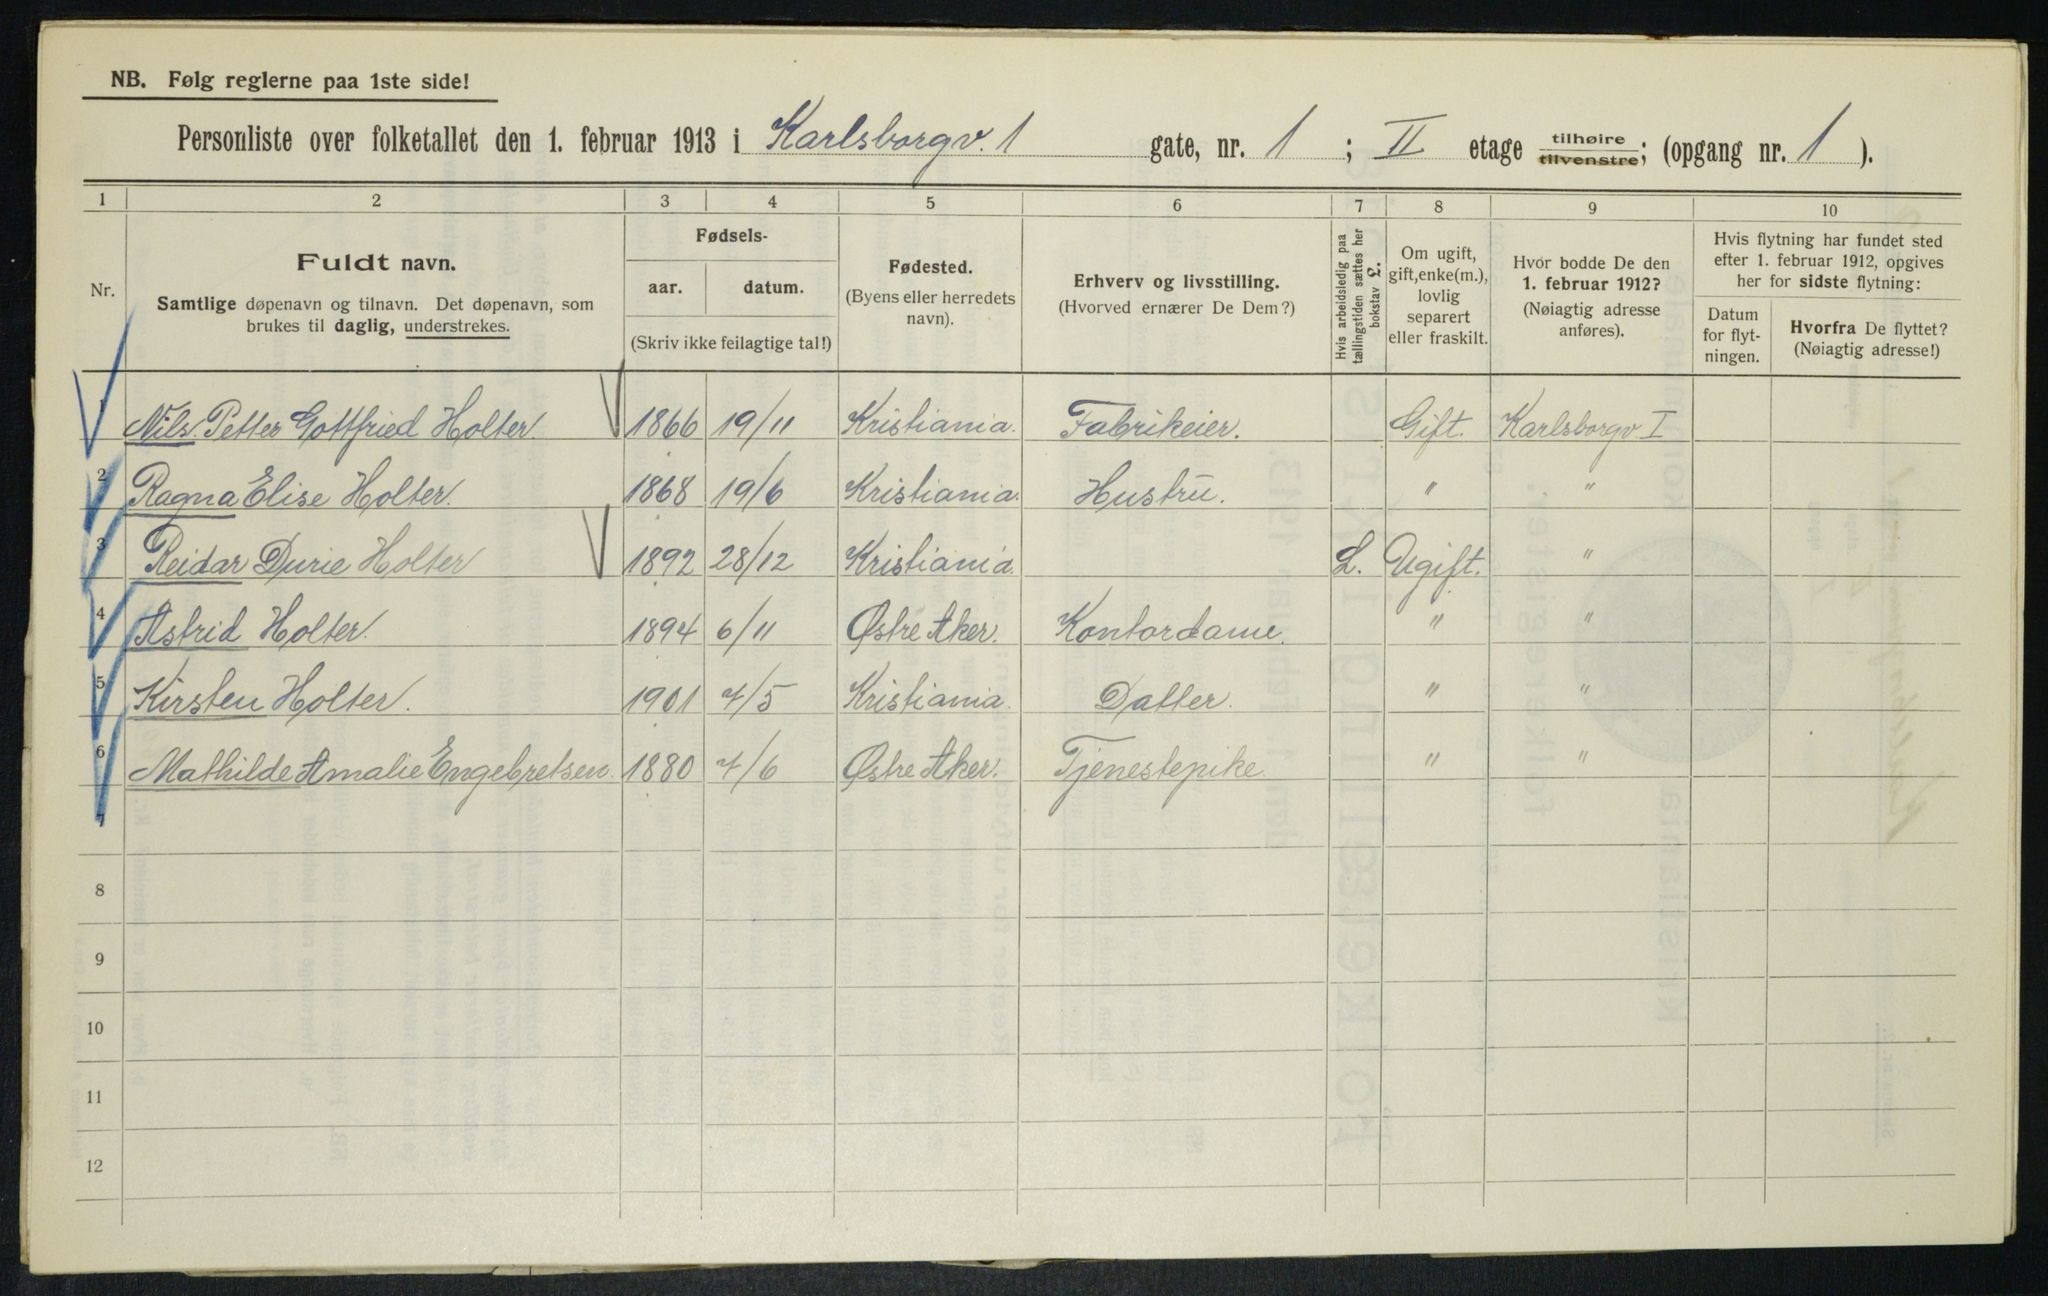 NB. Følg reglerne paa 1ste side!
Personliste over folketallet den 1. februar 1913 i Karlsborgv. 1 gate, nr. 1 ; II etage tilhøire tilvenstre; (opgang nr. 1 ).
1 2 3 4 5 6 7 8 9 10
Nr.
Fuldt navn.
Samtlige døpenavn og tilnavn. Det døpenavn, som
brukes til daglig, understrekes.
Fødsels-
aar. datum.
(Skriv ikke feilagtige tal!)
Fødested.
(Byens eller herredets
navn).
Erhverv og livsstilling.
(Hvorved ernærer De Dem?)
Hvis arbeidsledig paa
tællingstiden sættes her
bokstav L.
Om ugift,
gift, enke(m.),
lovlig
separert
eller fraskilt.
Hvor bodde De den
1. februar 1912?
(Nøiagtig adresse
anføres).
Hvis flytning har fundet sted
efter 1. februar 1912, opgives
her for sidste flytning:
Datum
for flyt-
ningen.
Hvorfra De flyttet?
(Nøiagtig adresse!)
1 Nils Petter Gottfried Holter. 1866 19/11 Kristiania. Fabrikeier. Gift. Karlsborgv I
2 Ragna Elise Holter. 1868 19/6 Kristiania. Hustru. " "
3 Reidar Durie Holter 1892 28/12 Kristiania. L. Ugift. "
4 Astrid Holter. 1894 6/11 Østre Aker. Kontordame. " "
5 Kirsten Holter. 1901 7/5 Kristiania. Datter. " "
6 Mathilde Amalie Engebretsen. 1880 7/6 Østre Aker. Tjenestepike " "
7
8
9
10
11
12